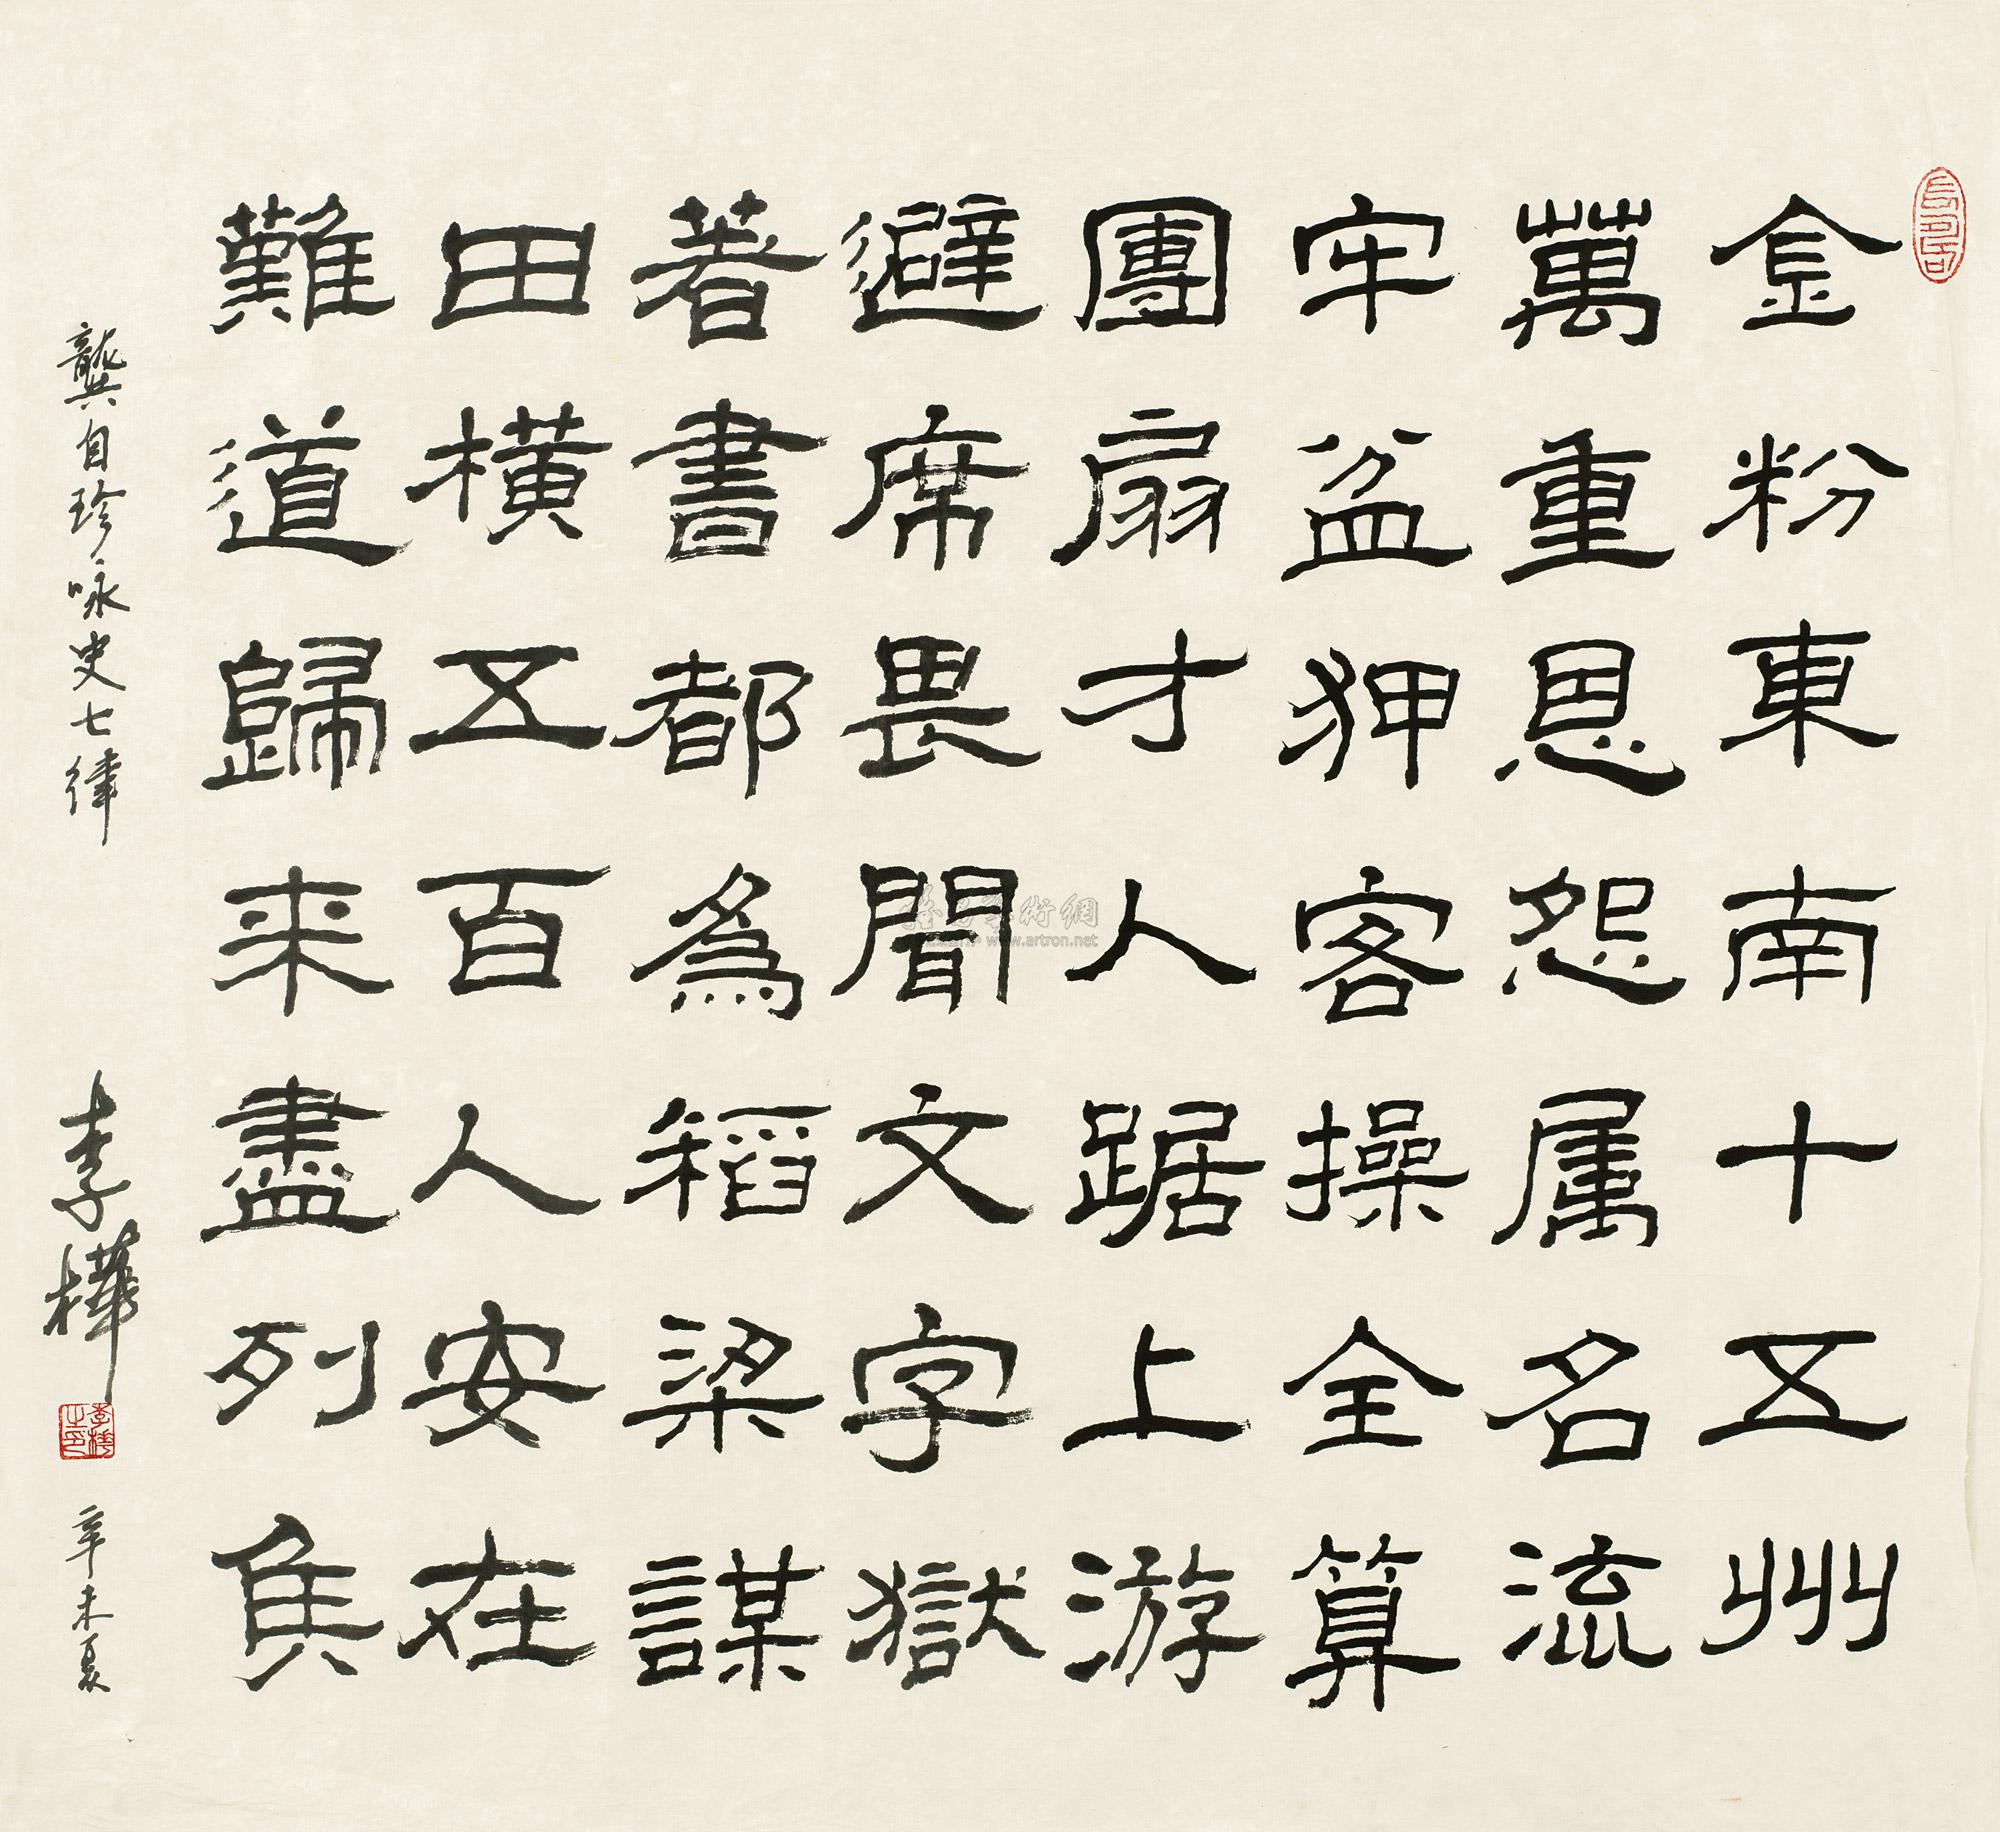 金粉東南十五州
萬重恩怨属名流
牢盆狎客操全算
團扇才人踞上游
避席畏聞文字獄
著書都為稻粱謀
田橫五百人安在
難道歸来盡列侯
龔自珍咏史七律 李樺 辛未夏
李樺之印
www.artron.net